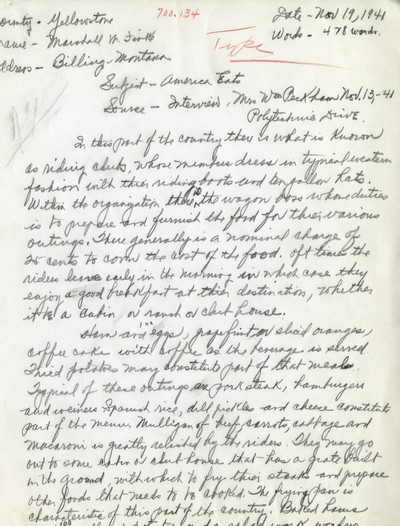 County - Yellowstone
700.134
Date - Nov 19, 1941
Name - Marshall
Words - 478 words.
Address - Billings - Montana
Type
Subject - America Eats
Source - Interview, Mrs Wm Peckham Nov. 13, - 41
Polytechnic Drive.
In this part of the country there is what is known
as riding clubs, whose members dress in typical western
fashion with their riding boots and ten gallon hats.
Within the organization there is the wagon boss whose duties
is to prepare and furnish the food for their various
outings. There generally is a nominal charge of
25 cents to cover the cost of the food. oft times the
riders leave early in the morning in which case they
enjoy a good breakfast at their destination, whether
it be a cabin or ranch or club house.
Ham and eggs, grapefruit or sliced oranges,
coffee cake with coffee as the beverage is served
Fried potatoes may constitute part of that meal.
Typical of these outings are pork steak, hamburgers
and weiners Spanish rice, dill pickles and cheese constitute
part of the menu. Mulligan of beef, carrots, cabbage and
Macaroni is greatly relished by the riders. They may go
out to some cabin or club house that has a grate built
in the ground, with which to fry their steaks and prepare
other foods that needs to be cooked. The frying pan is
characteristic of this part of the country. Baked hams